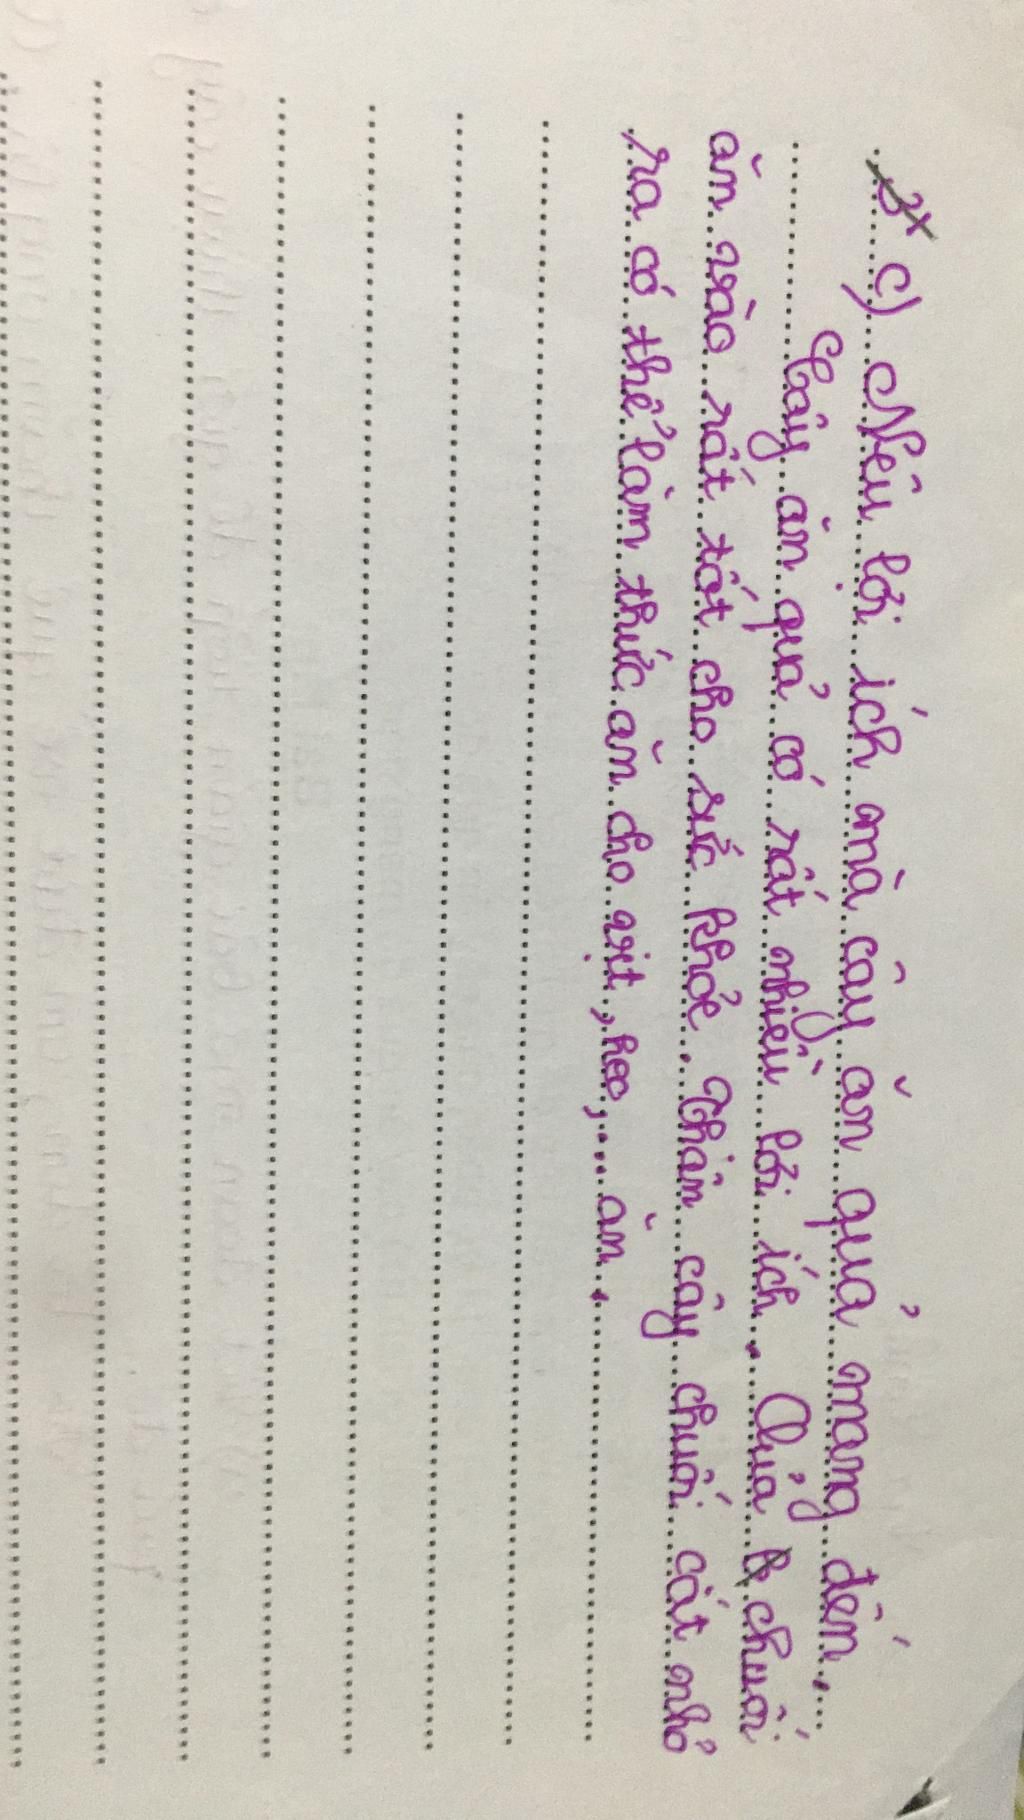 c) Nêu lợi ích mà cây ăn quả mang đến.
Cây ăn quả có rất nhiều lợi ích. Quả chuối
ăn vào rất tốt cho sức khỏe. Thân cây chuối cắt nhỏ
ra có thể làm thức ăn cho vịt, heo,... ăn.